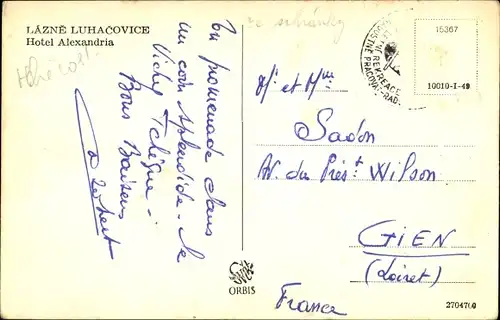 LÁZNĚ LUHAČOVICE
Hotel Alexandria
En promenade dans
un coin splendide - le
Vichy Tchèque -
Bons Baisers
ze schránky
15367
10010-I-49
PRACOVAT-RAD
Mr et Mme
Sadon
Av. du Prést Wilson
GIEN
(Loiret)
France
ORBIS
2704700